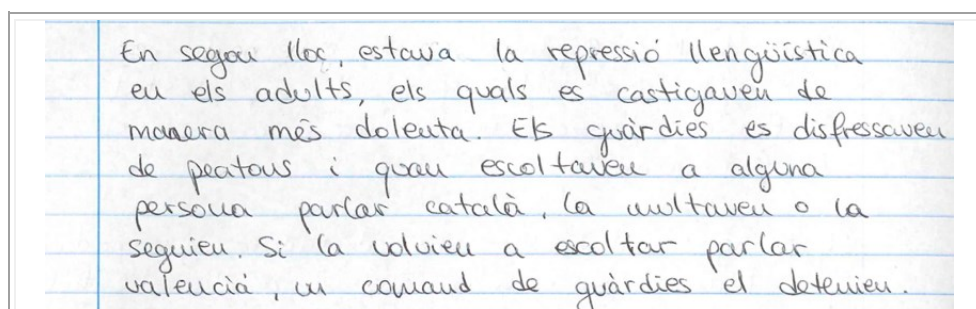 En segon lloc, estava la repressió llengüística
en els adults, els quals es castigaven de
manera més dolenta. Els guàrdies es disfressaven
de peatons i quan escoltaven a alguna
persona parlar català, la multaven o la
seguien. Si la volvien a escoltar parlar
valencià, un comand de guàrdies el detenien.